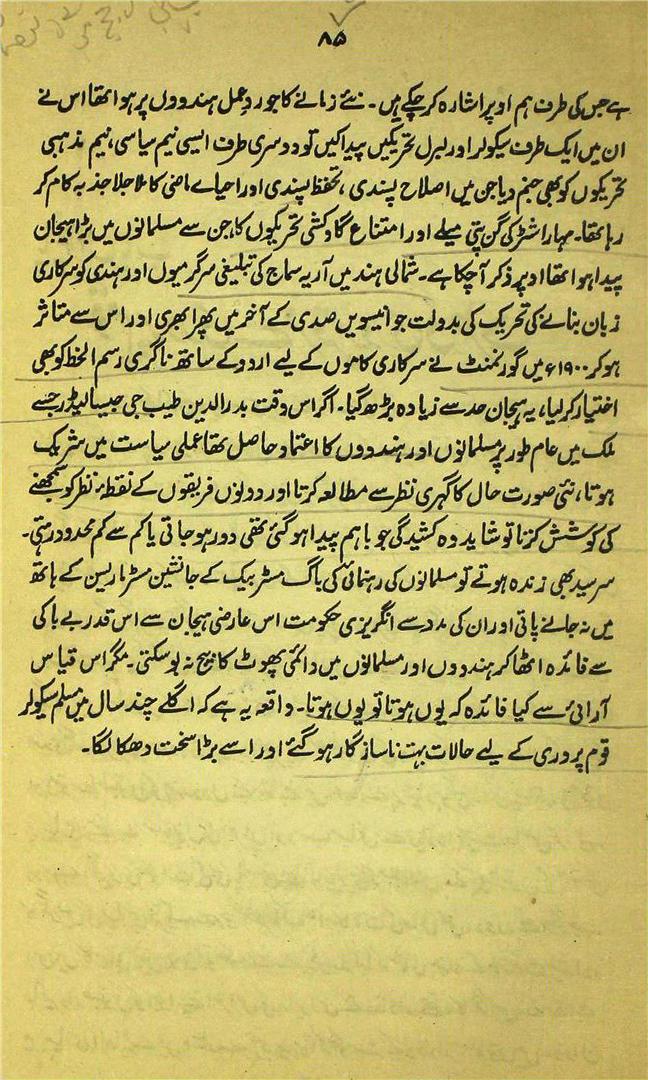 ۸۵
ہے جس کی طرف ہم اوپر اشارہ کر چکے ہیں۔ نئے زمانے کا جو ردِ عمل ہندوؤں پر ہوا تھا اس نے
ان میں ایک طرف سیکولر اور لبرل تحریکیں پیدا کیں تو دوسری طرف ایسی نیم سیاسی، نیم مذہبی
تحریکوں کو بھی جنم دیا جن میں اصلاح پسندی، تحفظ پسندی اور احیاے ماضی کا ملا جلا جذبہ کام کر
رہا تھا۔ مہاراشٹر کی گن پتی میلے اور امتناع گاؤ کشی تحریکوں کا، جن سے مسلمانوں میں بڑا ہیجان
پیدا ہوا تھا اوپر ذکر آ چکا ہے۔ شمالی ہند میں آریہ سماج کی تبلیغی سرگرمیوں اور ہندی کو سرکاری
زبان بنانے کی تحریک کی بدولت جو انیسویں صدی کے آخر میں پھر ابھری اور اس سے متاثر
ہو کر ۱۹۰۰ء میں گورنمنٹ نے سرکاری کاموں کے لیے اردو کے ساتھ ناگری رسم الخط کو بھی
اختیار کر لیا، یہ ہیجان حد سے زیادہ بڑھ گیا۔ اگر اس وقت بدرالدین طیب جی جیسا لیڈر جسے
ملک میں عام طور پر مسلمانوں اور ہندوؤں کا اعتماد حاصل تھا عملی سیاست میں شریک
ہوتا، نئی صورت حال کا گہری نظر سے مطالعہ کرتا اور دونوں فریقوں کے نقطۂ نظر کو سمجھنے
کی کوشش کرتا تو شاید وہ کشیدگی جو باہم پیدا ہو گئی تھی دور ہو جاتی یا کم سے کم محدود رہتی۔
سر سید بھی زندہ ہوتے تو مسلمانوں کی رہنمائی کی باگ مسٹر بیک کے جانشین مسٹر ماریسن کے ہاتھ
میں نہ جانے پاتی اور ان کی مدد سے انگریزی حکومت اس عارضی ہیجان سے اس قدر بے باکی
سے فائدہ اٹھا کر ہندوؤں اور مسلمانوں میں دائمی پھوٹ کا بیج نہ بو سکتی۔ مگر اس قیاس
آرائی سے کیا فائدہ کہ یوں ہوتا تو یوں ہوتا۔ واقعہ یہ ہے کہ اگلے چند سال میں مسلم سیکولر
قوم پروری کے لیے حالات بہت ناساز گار ہو گئے اور اسے بڑا سخت دھکا لگا۔